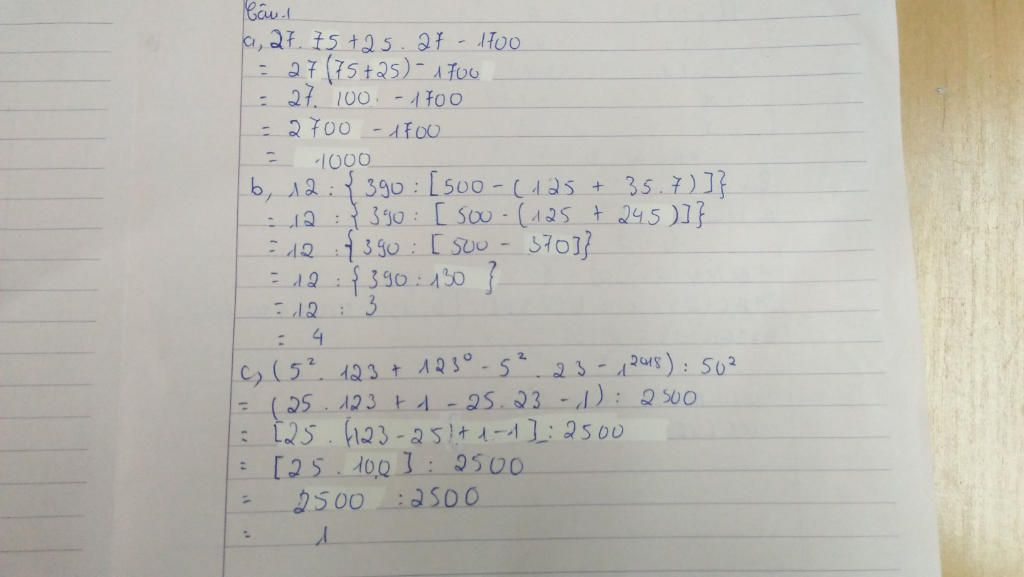 Câu.1
a, 27. 75 + 25. 27 - 1700
= 27 (75+25) - 1700
= 27. 100. - 1700
= 2700 - 1700
= 1000
b, 12 : { 390 : [500 - (125 + 35.7)]}
= 12 : { 390 : [ 500 - (125 + 245)]}
= 12 : { 390 : [ 500 - 370]}
= 12 : { 390 : 130 }
= 12 : 3
= 4
c, (5². 123 + 123⁰ - 5². 23 - 1²⁰¹⁸) : 50²
= (25. 123 + 1 - 25. 23 - 1) : 2500
= [25. (123 - 25) + 1 - 1] : 2500
= [25. 100] : 2500
= 2500 : 2500
= 1